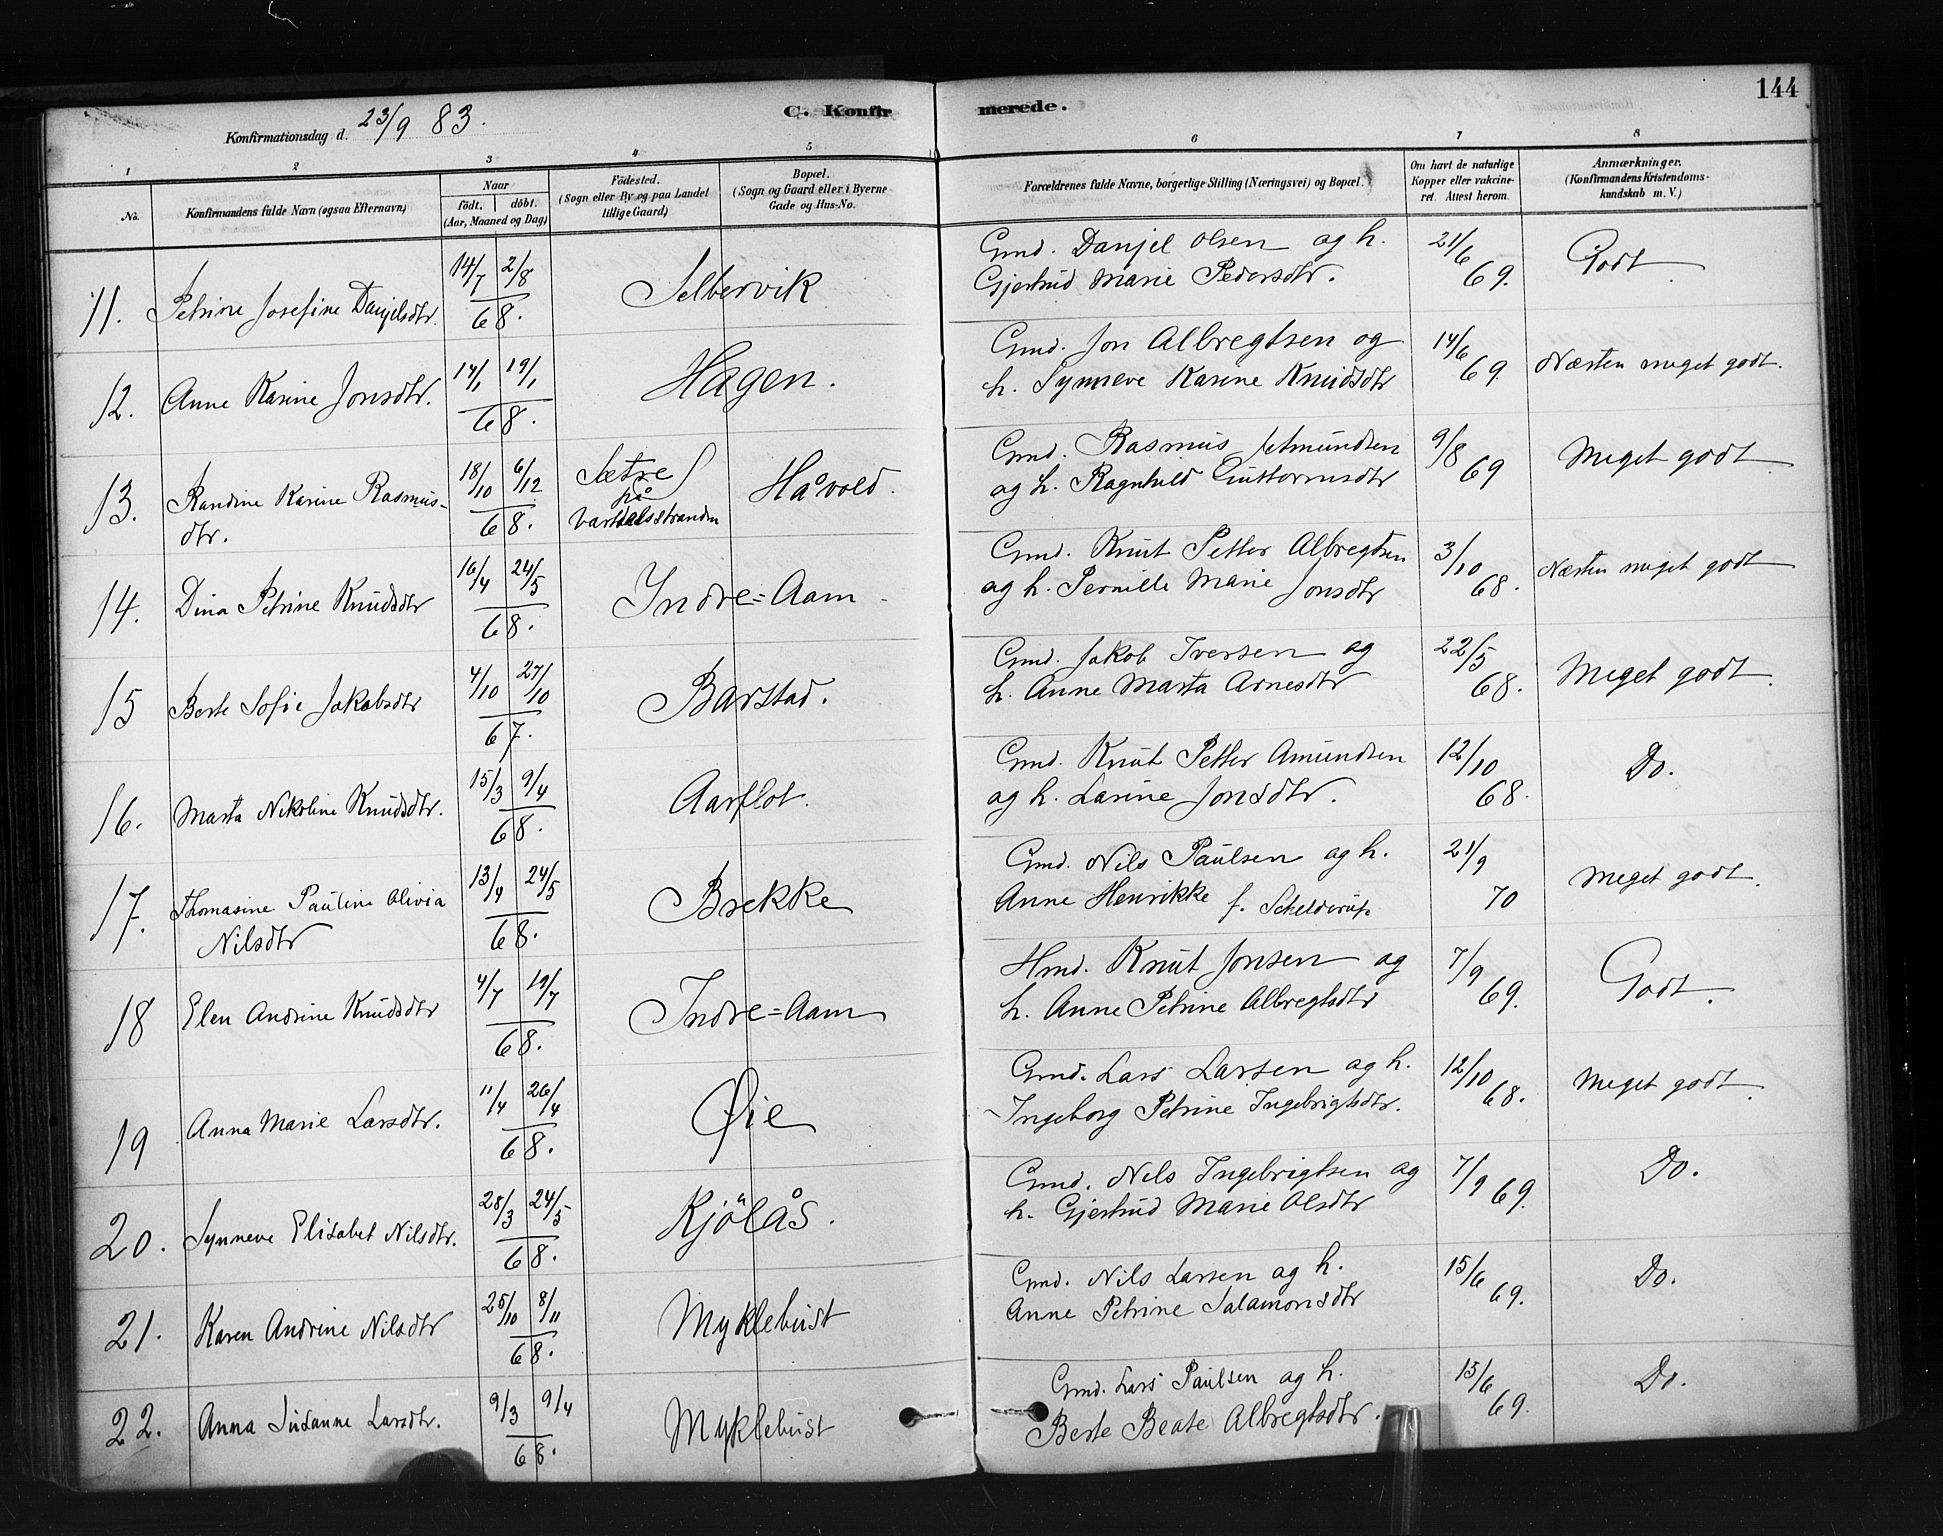 144
C. Konfirmerede.
Konfirmationsdag d. 23/9 83.
1 2 3 4 5 6 7 8
No. Konfirmandens fulde Navn (ogsaa Efternavn) Naar født. døbt. (Aar, Maaned og Dag) Fødested. (Sogn eller By og paa Landet tillige Gaard) Bopæl. (Sogn og Gaard eller i Byerne Gade og Hus-No. Forældrenes fulde Navne, borgerlige Stilling (Næringsvei) og Bopæl. Om havt de naturlige Kopper eller vakcineret. Attest herom. Anmærkninger. (Konfirmandens Kristendomskundskab m. V.)
11. Petrine Josefine Danjelsdtr. 14/7 2/8 68. Selbervik Gmd. Danjel Olsen og h. Gjertrud Marie Pedersdtr. 21/6 69. Godt
12. Anne Karine Jonsdtr. 14/1 19/1 68. Hagen. Gmd. Jon Albregtsen og h. Synneve Karine Knudsdtr 14/6 69. Næsten meget godt.
13. Randine Karine Rasmusdtr. 18/10 6/12 68. Sætre på Vartdalsstranden Håvold. Gmd. Rasmus Jetmundsen og h. Ragnhild Guttormsdtr 9/8 69 Meget godt
14. Dina Petrine Knudsdtr 16/4 24/5 68. Indre=Aam Gmd. Knut Petter Albregtsen og h. Pernille Marie Jonsdtr 3/10 68. Næsten meget godt
15 Berte Sofie Jakobsdtr 4/10 27/10 67. Barstad. Gmd. Jakob Iversen og h. Anne Marta Arnesdtr 22/5 68. Meget godt.
16. Marta Nikoline Knudsdtr. 15/3 9/4 68. Aarflot. Gmd. Knut Petter Amundsen og h. Larine Jonsdtr. 12/10 68. Do.
17. Thomasine Pauline Olivia Nilsdtr 13/4 24/5 68. Brekke Gmd. Nils Paulsen og h. Anne Henrikke f. Schelderup 21/9 70 Meget godt.
18 Elen Andrine Knudsdtr 4/7 19/7 68. Indre=Aam Hmd. Knut Jonsen og h. Anne Petrine Albregtsdtr 7/9 69. Godt.
19 Anna Marie Larsdtr. 11/4 26/4 68. Øie Gmd. Lars Larsen og h. Ingeborg Petrine Ingebrigtsdtr. 12/10 68. Meget godt.
20. Synneve Elisabet Nilsdtr. 28/3 24/5 68. Kjölås. Gmd. Nils Ingebrigtsen og h. Gjertrud Marie Olsdtr 7/9 69. Do.
21. Karen Andrine Nilsdtr 25/10 8/11 68. Myklebust Gmd. Nils Larsen og h. Anne Petrine Salamonsdtr 15/6 69. Do.
22. Anna Susanne Larsdtr. 9/3 9/4 68. Myklebust Gmd. Lars Paulsen og h. Berte Beate Albregtsdtr. 15/6 69. Do.